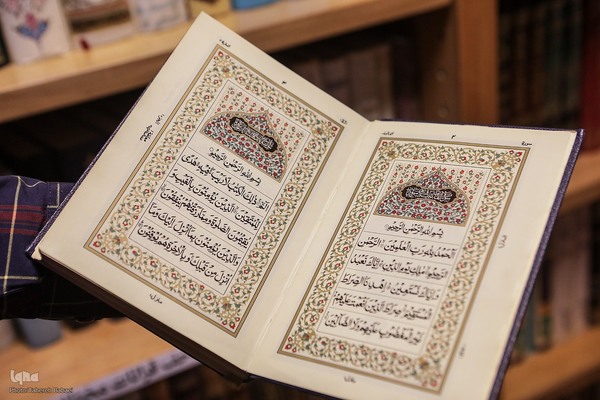 ٢
بِسْمِ اللهِ الرَّحْمٰنِ الرَّحِيمِ
اَلْحَمْدُ لِلّٰهِ رَبِّ الْعٰالَمِينَ الرَّحْمٰنِ
الرَّحِيمِ مٰالِكِ يَوْمِ الدِّينِ اِيّٰاكَ نَعْبُدُ
وَاِيّٰاكَ نَسْتَعِينُ اِهْدِنَا الصِّرٰاطَ
الْمُسْتَقِيمَ صِرٰاطَ الَّذِينَ اَنْعَمْتَ عَلَيْهِمْ
غَيْرِ الْمَغْضُوبِ عَلَيْهِمْ وَلَا الضّٰالِّينَ
٣
بِسْمِ اللهِ الرَّحْمٰنِ الرَّحِيمِ
الم ذٰلِكَ الْكِتٰابُ لٰا رَيْبَ فِيهِ هُدًى
لِلْمُتَّقِينَ الَّذِينَ يُؤْمِنُونَ بِالْغَيْبِ وَ
يُقِيمُونَ الصَّلٰوةَ وَمِمّٰا رَزَقْنٰاهُمْ يُنْفِقُونَ
وَالَّذِينَ يُؤْمِنُونَ بِمٰا اُنْزِلَ اِلَيْكَ وَمٰا
اُنْزِلَ مِنْ قَبْلِكَ وَبِالْاٰخِرَةِ هُمْ يُوقِنُونَ
iqna